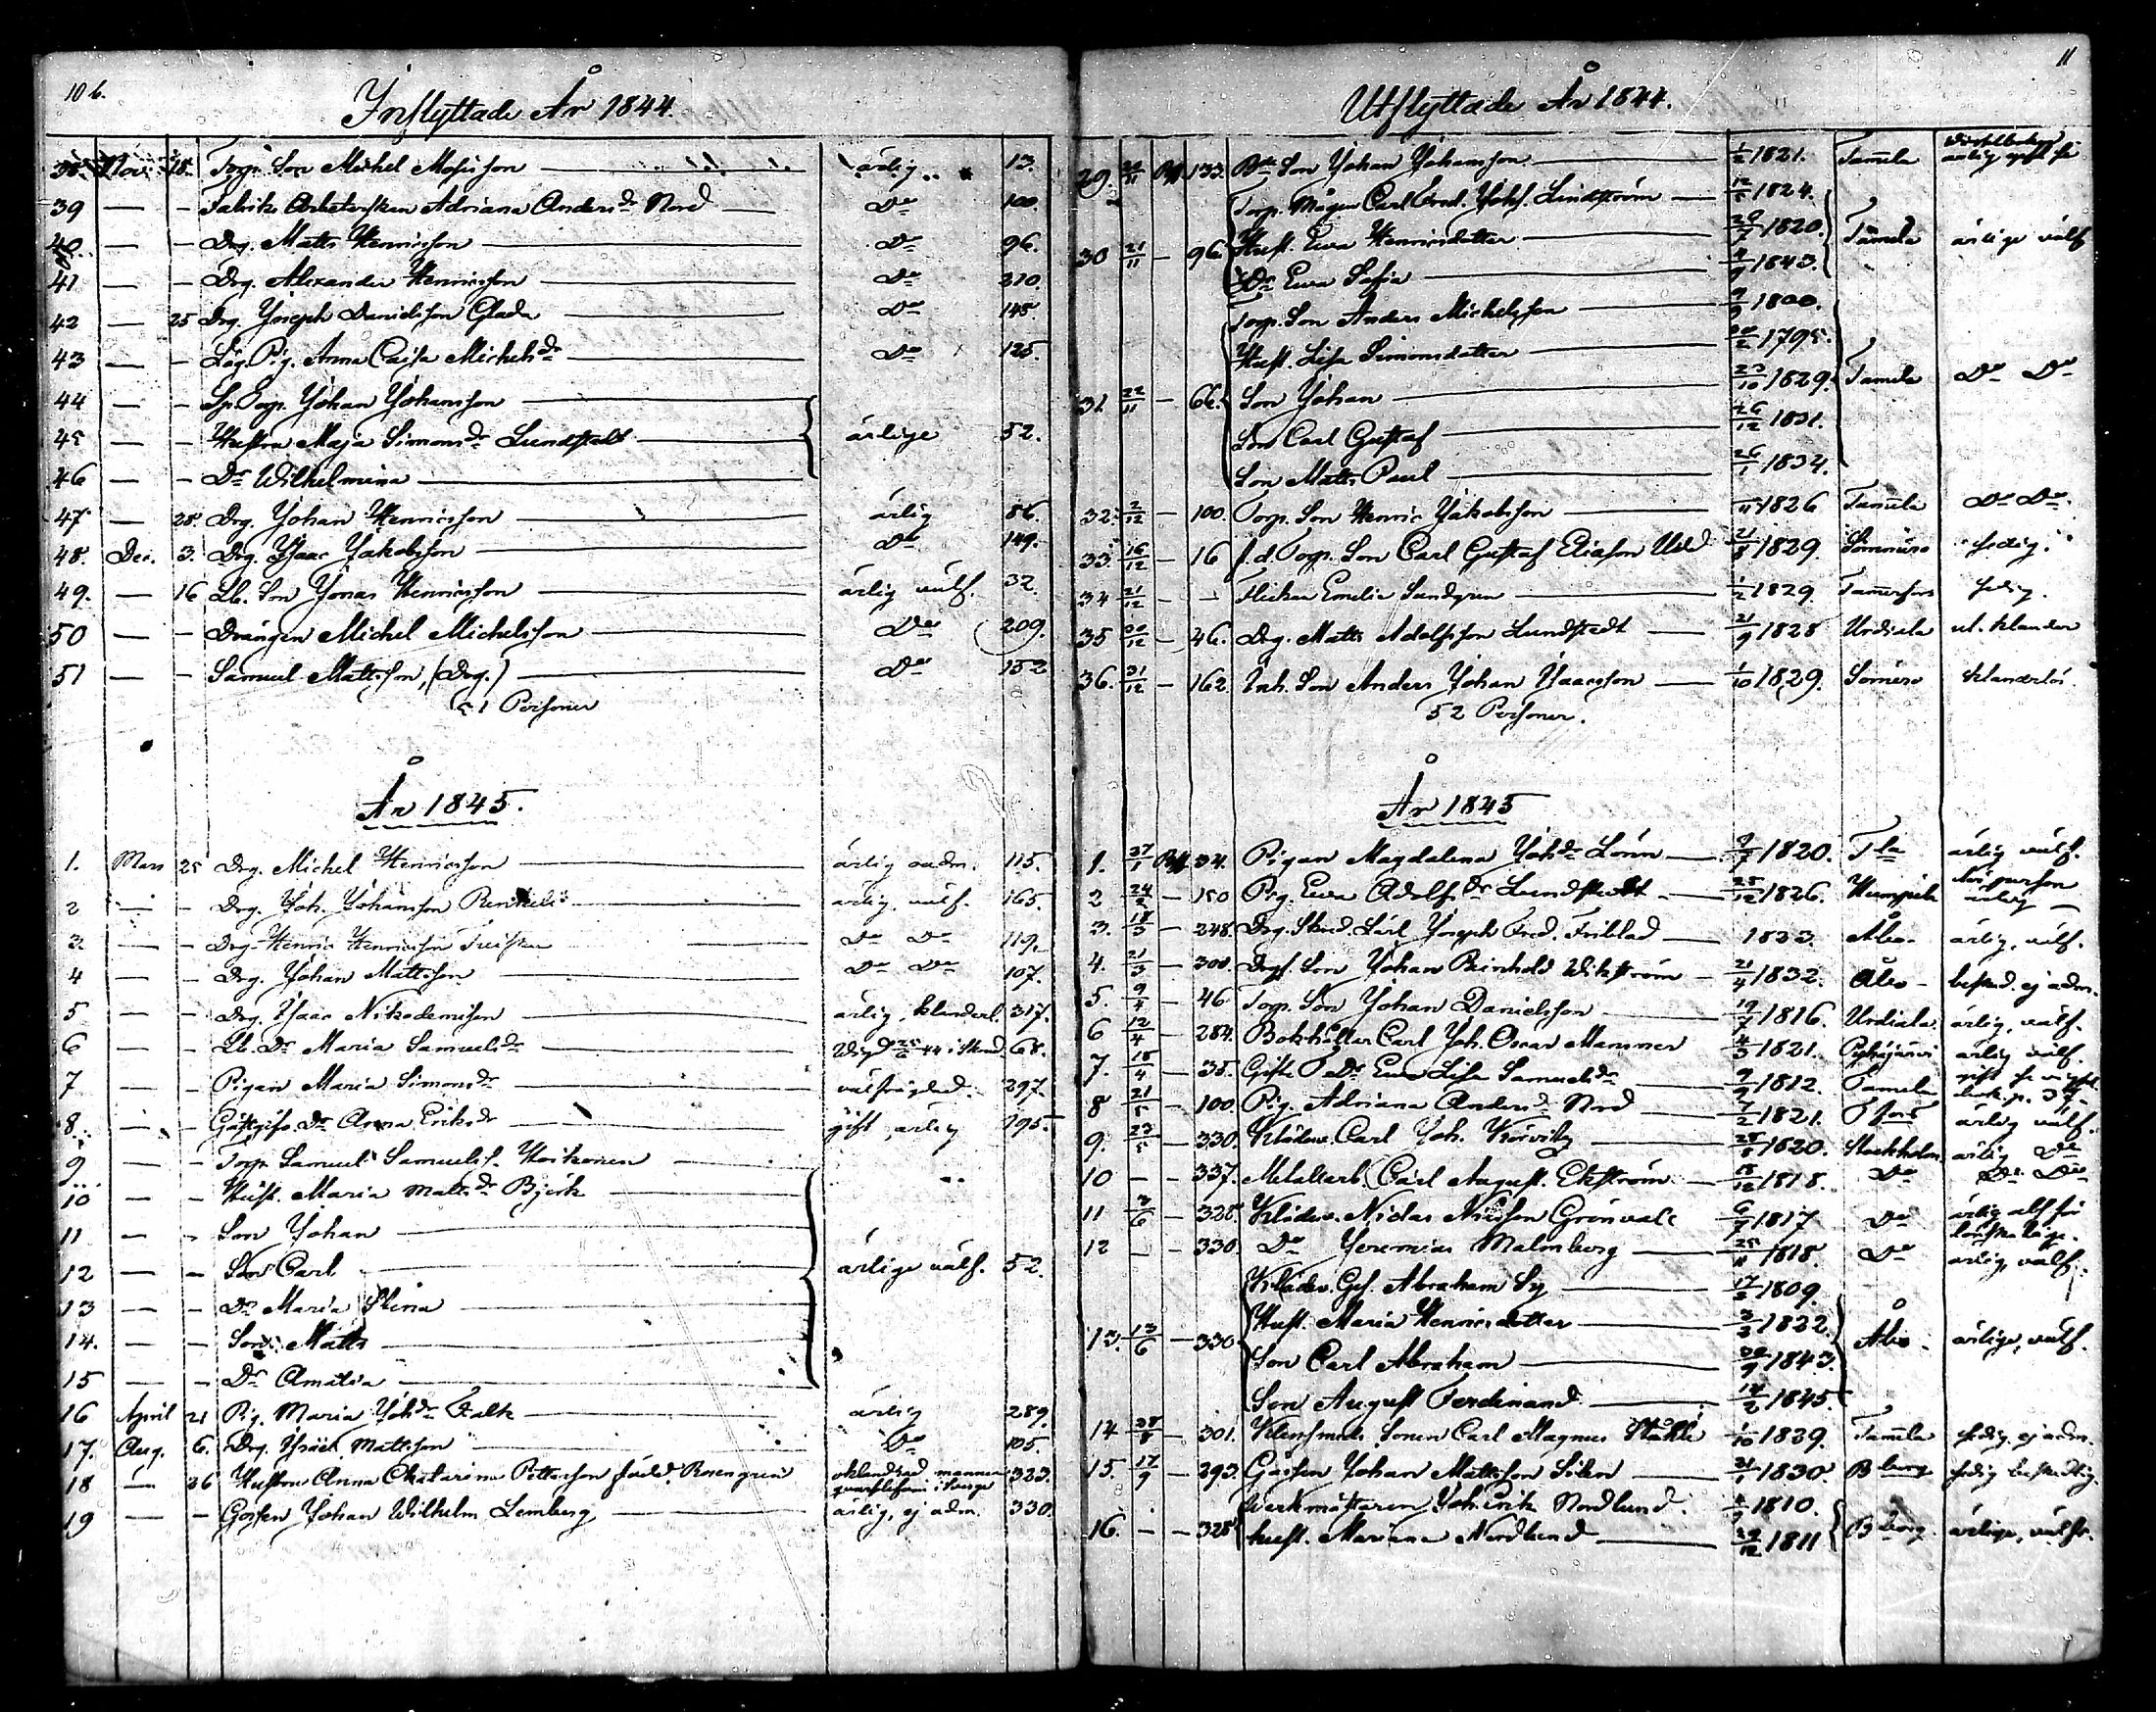 10 b.
Inflyttade År 1844.
38. Nov. 18. Torp. Son Michel Mosisson årlig 13.
39 — — Fabriks Arbeterskan Adriana Andersdr Nord Do 100.
40. — — Drg. Matts Henricsson Do 96.
41 — — Drg. Alexander Henricsson Do 210.
42 — 25 Drg. Joseph Danielsson Glada Do 148
43 — — Lög. Pig. Anna Cajsa Michelsdr Do 125.
44 — — Sp. Torp. Johan Johansson
45 — — Hustru Maja Simonsdr Lundstedt årlige 52.
46 — — Dr Wilhelmina
47 — 28 Drg. Johan Henricsson årlig 86.
48. Dec. 3. Drg. Isaac Jakobsson Do 149.
49. — 16 Lb. Son Jonas Henricsson årlig välf. 32.
50 — — Drängen Michel Michelsson Do 209.
51 — — Samuel Mattsson, (Drg.) Do 152
51 Personer
År 1845.
1. Mars 25 Drg. Michel Henricsson årlig adm. 115.
2 — — Drg. Joh. Johansson årlig, välf. 165.
3 — — Drg. Henric Henricsson Do Do 119.
4 — — Drg. Johan Mattsson Do Do 107.
5 — — Drg. Isaac Nikodemisson årlig, klanderl. 317.
6 — — Lb. Dr Maria Samuelsdr 68.
7 — — Pigan Maria Simonsdr välfräjdad 297.
8. — — Gästgifv. Dr Anna Eriksdr gift, årlig 195.
9. — — Torp. Samuel Samuelsf. Koikonen
10 — — Hust. Maria Mattsdr Björk
11 — — Son Johan
12 — — Son Carl årlige välf. 52.
13 — — Dr Maria Stina
14. — — Son Matts
15 — — Dr Amalia
16 April 21 Pig. Maria Johdr Falk årlig 289.
17. Aug. 6. Drg. Isäck Mattsson Do 105.
18 — 26 Hustru Anna Chatarina Petterson född Rosengren oklandrad mannen i Sverge 323.
19 — — Gossen Johan Wilhelm Lemberg årlig, ej adm. 330.
11
Utflyttade År 1844.
29. 133. Son Johan Johansson 1/2 1821. Tamela årlig
Torp. Mågen Carl Fred. Johs. Lindström 12/5 1824.
30 21/11 — 96 Hust. Ewa Henricsdotter 1820. Tamela årlige välf
Dr Ewa Sofia 1843.
Torp. Son Anders Michelsson 1800.
Hust. Lisa Simonsdotter 1795.
31. 22/11 — 66. Son Johan 23/10 1829. Tamela Do Do
Son Carl Gustaf 1831.
Son Matts Paul 26/1 1834.
32. 2/12 — 100. Torp. Son Henric Jakobsson 1826 Tamela Do Do
33. 16/12 — 16 f.d. Torp. Son Carl Gustaf Eliasson 21/8 1829. Somméro sedig.
34 21/12 — — Flickan Emelie Sundgren 1/2 1829. Tamerfors sedig.
35 30/12 — 46. Drg. Matts Adolfsson Lundstedt 21/9 1828 Urdiala ut. klander
36. 31/12 — 162. Inh. Son Anders Johan Isaacsson 1/10 1829. Soméro klanderlös.
52 Personer.
År 1845
1. 27/1 34. Pigan Magdalena Johdr Lönn 1820. Tla årlig välf.
2 24/2 — 150 Pig. Ewa Adolfsdr Lundstedt 25/12 1826. Humppila årlig
3. 18/3 — 248. Drg. Joseph Fred. Friblad 1823. Åbo årlig, välf.
4. 21/3 — 300. Son Johan Reinhold Wikström 21/4 1832. Åbo — ej adm.
5. 9/4 — 46. Torp. Son Johan Danielsson 19/7 1816. Urdiala årlig, välf.
6 12/4 — 284. Bokhållar Carl Joh. Oscar Manner 4/3 1821. Pyhäjärvi årlig välf.
7. 18/4 — 35. Gifta Ewa Lisa Samuelsdr 1812. Tamela
8 21/5 — 100. Pig. Adriana Andersdr Nord 1821. Tfors årlig välf.
9. 23/5 — 330. Klädew. Carl Joh. 1820. Stockholm årlig Do
10 — — 337. Metallarb. Carl August. Ekström 18/12 1818. Do Do Do
11 3/6 — 328. Klädew. Niclas Nilsson Grönvall 1817 Do årlig
12 — — 330. Do Jeremias Malmberg 1818. Do årlig, välf.
Klädew. Ges. Abraham Sy 17/2 1809.
13. 13/6 — 330 Hust. Maria Henricsdotter 1822. Åbo årlige, välf.
Son Carl Abraham 1843.
Son August Ferdinand 14/2 1845.
14 28/8 — 301. Sonen Carl Magnus Ståhle 1/10 1839. Tamela sedig, ej adm.
15. 17/9 — 293. Gossen Johan Mattsson Silén 1830. Bborg sedig
Verkmästaren Joh. Erik Nordlund 1810.
16. — — 328 hust. Mariana Nordlund 1811 Bborg årlige, välfr.